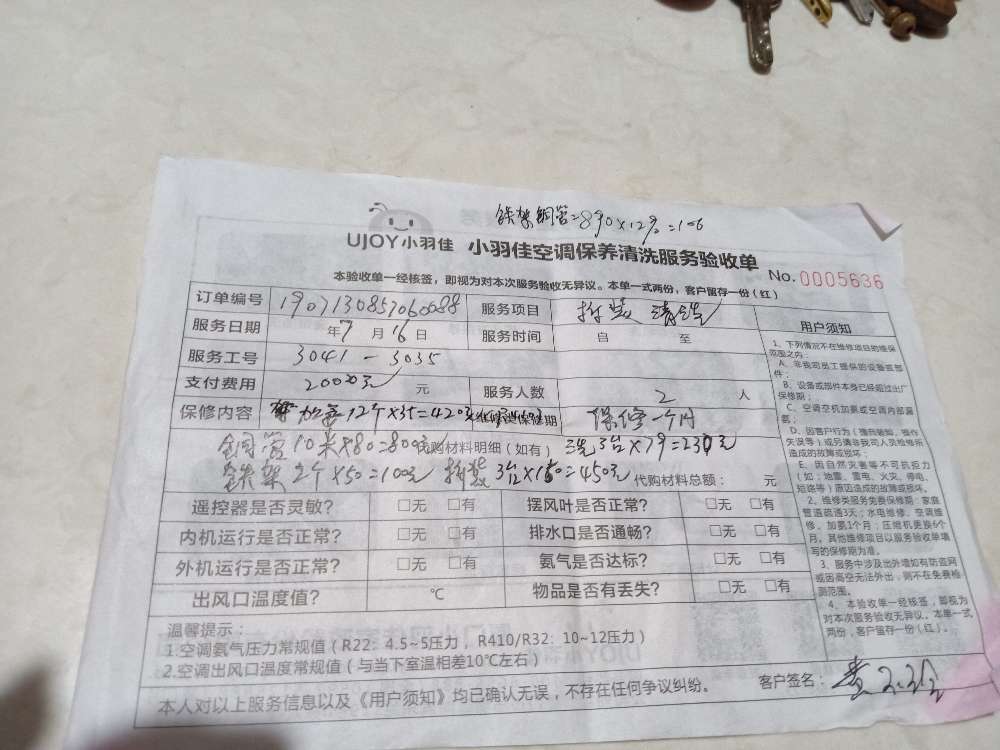 铁架铜管=890×12%=106
UJOY小羽佳 小羽佳空调保养清洗服务验收单
No. 0005636
本验收单一经核签，即视为对本次服务验收无异议。本单一式两份，客户留存一份（红）
订单编号 服务项目 拆装 清洗
服务日期 年7月16日 服务时间 自 至
服务工号 3041-3035
支付费用 2000元 元 服务人数 2 人
保修内容 12个×35=420元 保修期 保修一个月
铜管10米×80=800元 代购材料明细（如有） 洗3台×79=230元
铁架2个×50=100元 拆装3台×150=450元 代购材料总额： 元
遥控器是否灵敏？ □无 □有 摆风叶是否正常？ □无 □有
内机运行是否正常？ □无 □有 排水口是否通畅？ □无 □有
外机运行是否正常？ □无 □有 氨气是否达标？ □无 □有
出风口温度值？ ℃ 物品是否有丢失？ □无 □有
温馨提示：
1.空调氨气压力常规值（R22：4.5~5压力，R410/R32：10~12压力）
2.空调出风口温度常规值（与当下室温相差10℃左右）
本人对以上服务信息以及《用户须知》均已确认无误，不存在任何争议纠纷。
客户签名：
用户须知
1、下列情况不在维修项目的维保
范围之内：
A、非我司员工提供的设备或部
件；
B、设备或部件本身已经超过出厂
保修期；
C、空调空机加氨或空调内部漏
D、因客户行为（擅自破坏，操作
失误等）或另请非我司人员检修所
造成的故障或损坏；
E、因自然灾害等不可抗拒力
（如：地震、雷电、火灾、停电、
短路等）原因造成的故障或损坏。
2、维修类服务免费保修期：家庭
管道疏通3天；水电维修、空调维
修、加氨1个月；压缩机更换6个
月。其他维修项目以服务验收单填
写的保修期为准。
3、服务中涉及出外墙如有防盗网
或因高空无法外出，则不在免费检
测范围。
4、本验收单一经核签，即视为
对本次服务验收无异议。本单一式
两份，客户留存一份（红）。